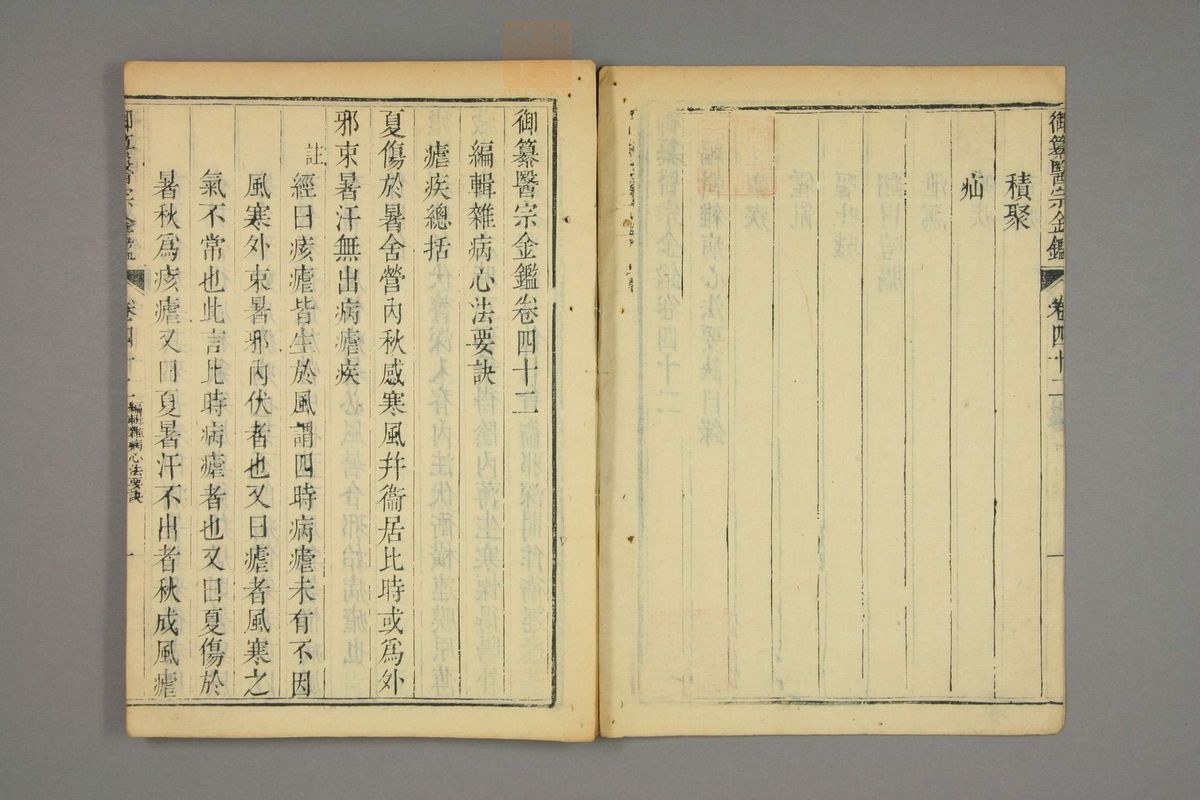 御纂醫宗金鑑 卷四十二
積聚
疝
御纂醫宗金鑑卷四十二
編輯雜病心法要訣
瘧疾總括
夏傷於暑舍營內秋感寒風幷衞居比時或爲外
邪束暑汗無出病瘧疾
註經曰痎瘧皆生於風謂四時病瘧未有不因
風寒外束暑邪內伏者也又曰瘧者風寒之
氣不常也此言比時病瘧者也又曰夏傷於
暑秋爲痎瘧又曰夏暑汗不出者秋成風瘧
御纂醫宗金鑑 卷四十二 編輯雜病心法要訣 一